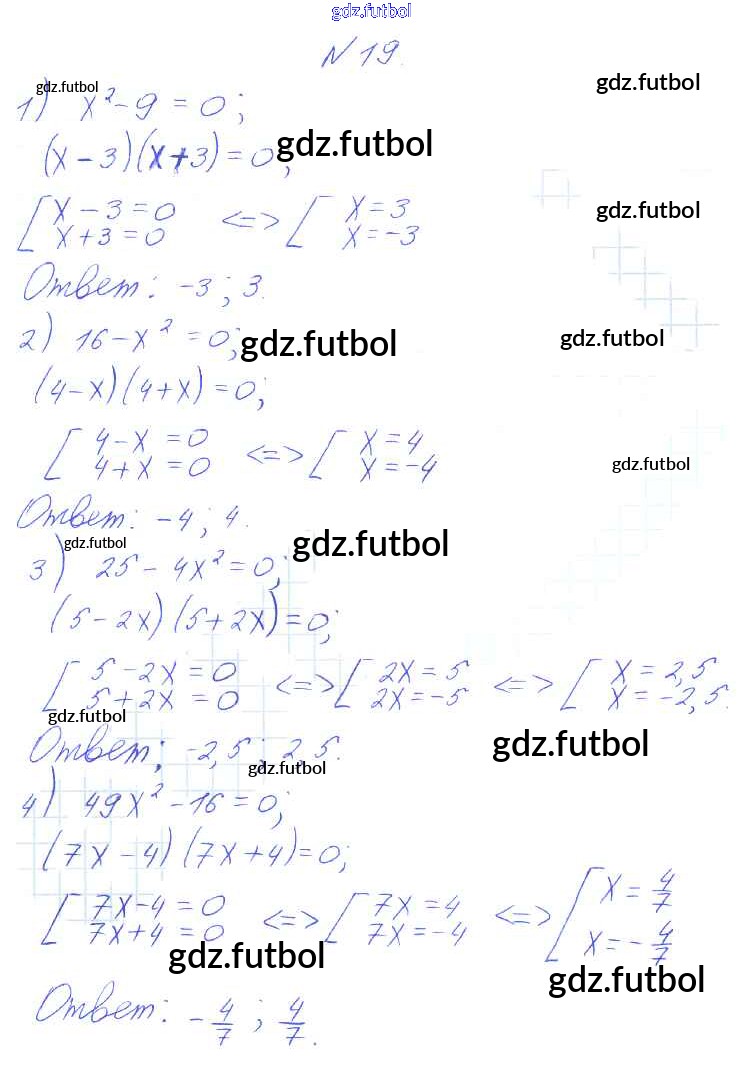 gdz.futbol
N 19.
gdz.futbol
gdz.futbol
1) x² - 9 = 0;
(x - 3)(x + 3) = 0;
gdz.futbol
[ x - 3 = 0 <=> [ x = 3
x + 3 = 0 x = -3
gdz.futbol
Ответ: -3; 3.
2) 16 - x² = 0;
gdz.futbol
gdz.futbol
(4 - x)(4 + x) = 0;
[ 4 - x = 0 <=> [ x = 4
4 + x = 0 x = -4
gdz.futbol
Ответ: -4; 4.
gdz.futbol
gdz.futbol
3) 25 - 4x² = 0;
(5 - 2x)(5 + 2x) = 0;
[ 5 - 2x = 0 <=> [ 2x = 5 <=> [ x = 2,5
5 + 2x = 0 2x = -5 x = -2,5.
gdz.futbol
Ответ: -2,5; 2,5.
gdz.futbol
gdz.futbol
4) 49x² - 16 = 0;
(7x - 4)(7x + 4) = 0;
[ 7x - 4 = 0 <=> [ 7x = 4 <=> [ x = 4/7
7x + 4 = 0 7x = -4 x = -4/7
gdz.futbol
gdz.futbol
Ответ: -4/7; 4/7.